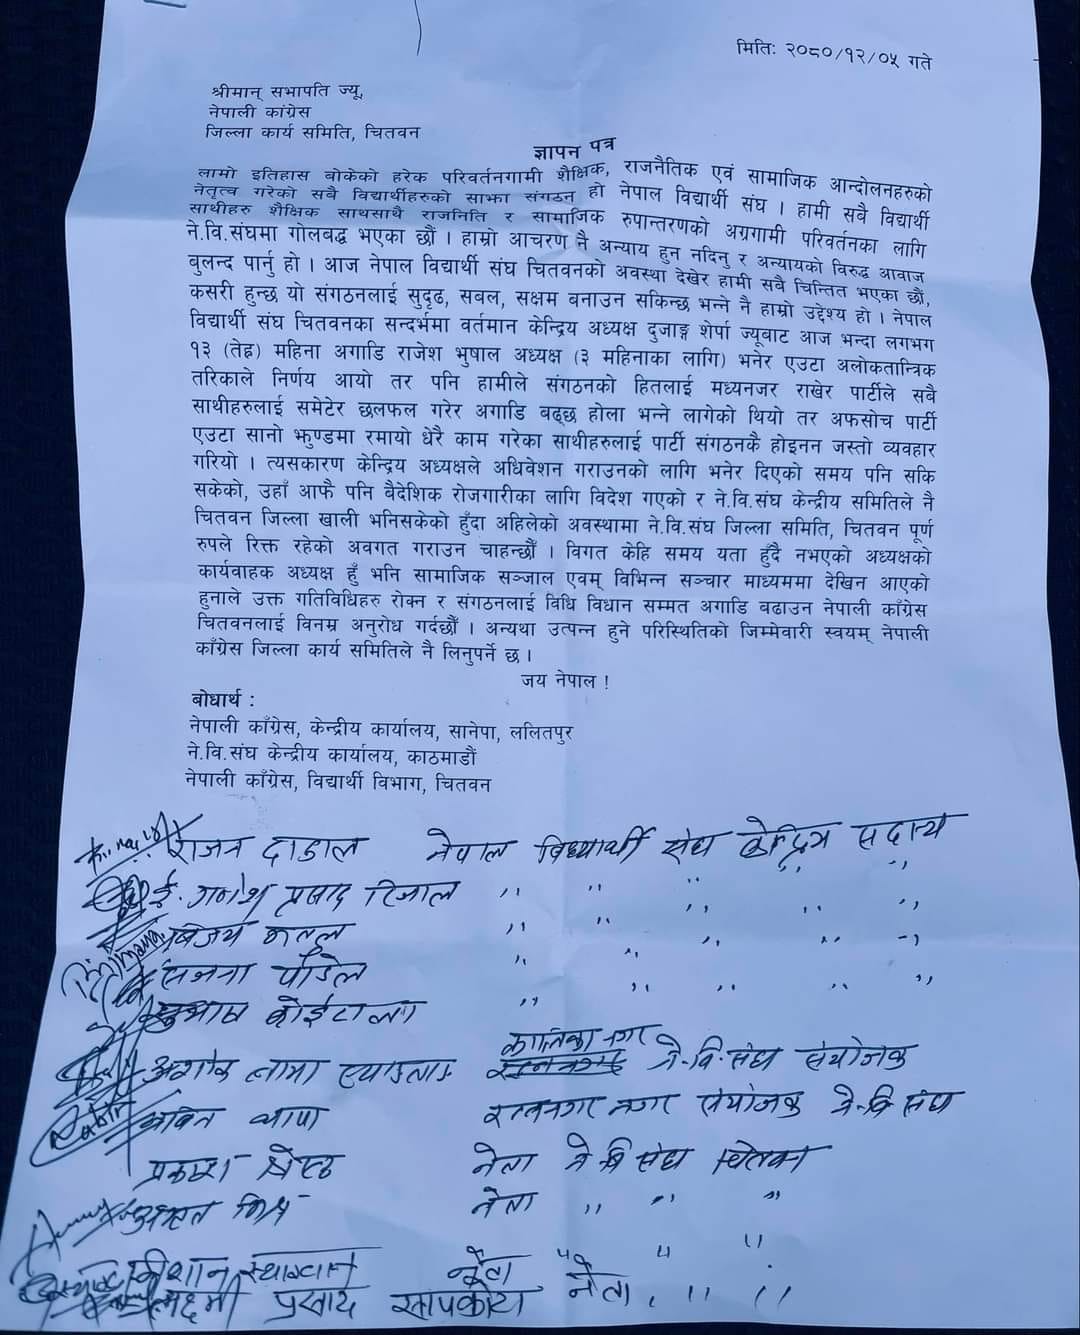 मितिः २०८०/१२/०५ गते
श्रीमान् सभापति ज्यू,
नेपाली कांग्रेस
जिल्ला कार्य समिति, चितवन
ज्ञापन पत्र
लामो इतिहास बोकेको हरेक परिवर्तनगामी शैक्षिक, राजनैतिक एवं सामाजिक आन्दोलनहरुको
नेतृत्व गरेको सबै विद्यार्थीहरुको साझा संगठन हो नेपाल विद्यार्थी संघ । हामी सबै विद्यार्थी
साथीहरु शैक्षिक साथसाथै राजनिति र सामाजिक रुपान्तरणको अग्रगामी परिवर्तनका लागि
ने.वि.संघमा गोलबद्ध भएका छौं । हाम्रो आचरण नै अन्याय हुन नदिनु र अन्यायको विरुद्ध आवाज
बुलन्द पार्नु हो । आज नेपाल विद्यार्थी संघ चितवनको अवस्था देखेर हामी सबै चिन्तित भएका छौं,
कसरी हुन्छ यो संगठनलाई सुदृढ, सबल, सक्षम बनाउन सकिन्छ भन्ने नै हाम्रो उद्देश्य हो । नेपाल
विद्यार्थी संघ चितवनका सन्दर्भमा वर्तमान केन्द्रिय अध्यक्ष दुजाङ्ग शेर्पा ज्यूबाट आज भन्दा लगभग
१३ (तेह्र) महिना अगाडि राजेश भुषाल अध्यक्ष (३ महिनाका लागि) भनेर एउटा अलोकतान्त्रिक
तरिकाले निर्णय आयो तर पनि हामीले संगठनको हितलाई मध्यनजर राखेर पार्टीले सबै
साथीहरुलाई समेटेर छलफल गरेर अगाडि बढ्छ होला भन्ने लागेको थियो तर अफसोच पार्टी
एउटा सानो झुण्डमा रमायो धेरै काम गरेका साथीहरुलाई पार्टी संगठनकै होइनन जस्तो व्यवहार
गरियो । त्यसकारण केन्द्रिय अध्यक्षले अधिवेशन गराउनको लागि भनेर दिएको समय पनि सकि
सकेको, उहाँ आफै पनि बैदेशिक रोजगारीका लागि विदेश गएको र ने.वि.संघ केन्द्रीय समितिले नै
चितवन जिल्ला खाली भनिसकेको हुँदा अहिलेको अवस्थामा ने.वि.संघ जिल्ला समिति, चितवन पूर्ण
रुपले रिक्त रहेको अवगत गराउन चाहन्छौं । विगत केहि समय यता हुँदै नभएको अध्यक्षको
कार्यवाहक अध्यक्ष हुँ भनि सामाजिक सञ्जाल एवम् विभिन्न सञ्चार माध्यममा देखिन आएको
हुनाले उक्त गतिविधिहरु रोक्न र संगठनलाई विधि विधान सम्मत अगाडि बढाउन नेपाली काँग्रेस
चितवनलाई विनम्र अनुरोध गर्दछौं । अन्यथा उत्पन्न हुने परिस्थितिको जिम्मेवारी स्वयम् नेपाली
काँग्रेस जिल्ला कार्य समितिले नै लिनुपर्ने छ ।
जय नेपाल !
बोधार्थ :
नेपाली काँग्रेस, केन्द्रीय कार्यालय, सानेपा, ललितपुर
ने.वि.संघ केन्द्रीय कार्यालय, काठमाडौं
नेपाली काँग्रेस, विद्यार्थी विभाग, चितवन
राजन दाहाल नेपाल विद्यार्थी संघ केन्द्रिय सदस्य
ई. गणेश प्रसाद रिजाल ,, ,, ,, ,, ,,
विजय ,, ,, ,, ,, ,,
सजना पौडेल ,, ,, ,, ,, ,,
सुभाष कोईराला ,, ,, ,, ,, ,,
अशोक लामा कालिका नगर ने.वि.संघ संयोजक
थापा रत्ननगर नगर संयोजक ने.वि.संघ
प्रकाश श्रेष्ठ नेता ने.वि.संघ चितवन
मिश्र नेता ,, ,, ,,
नेता ,, ,, ,,
प्रसाद सापकोटा नेता ,, ,, ,,